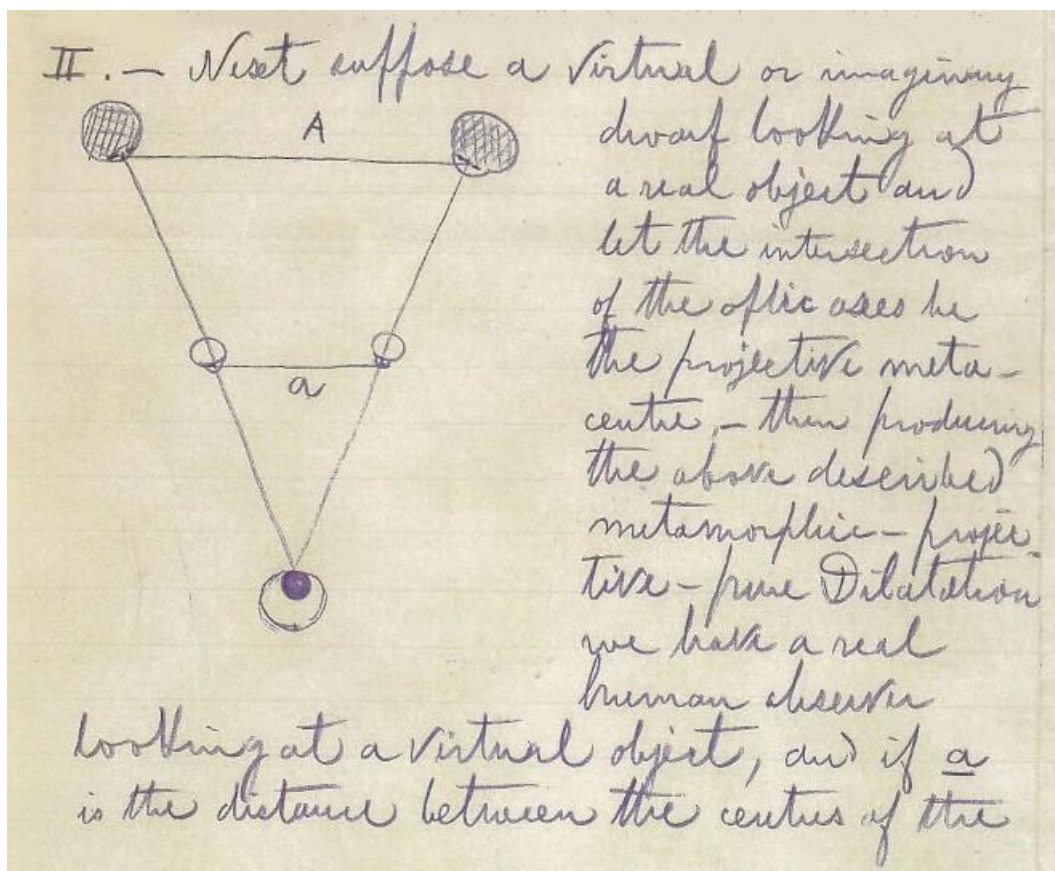 II. — Next suppose a virtual or imaginary
A
dwarf looking at
a real object and
let the intersection
of the optic axes be
the projective meta-
a
centre, — then producing
the above described
metamorphic — projec-
tive — pure Dilatation
we have a real
human observer
looking at a virtual object, and if a
is the distance between the centres of the